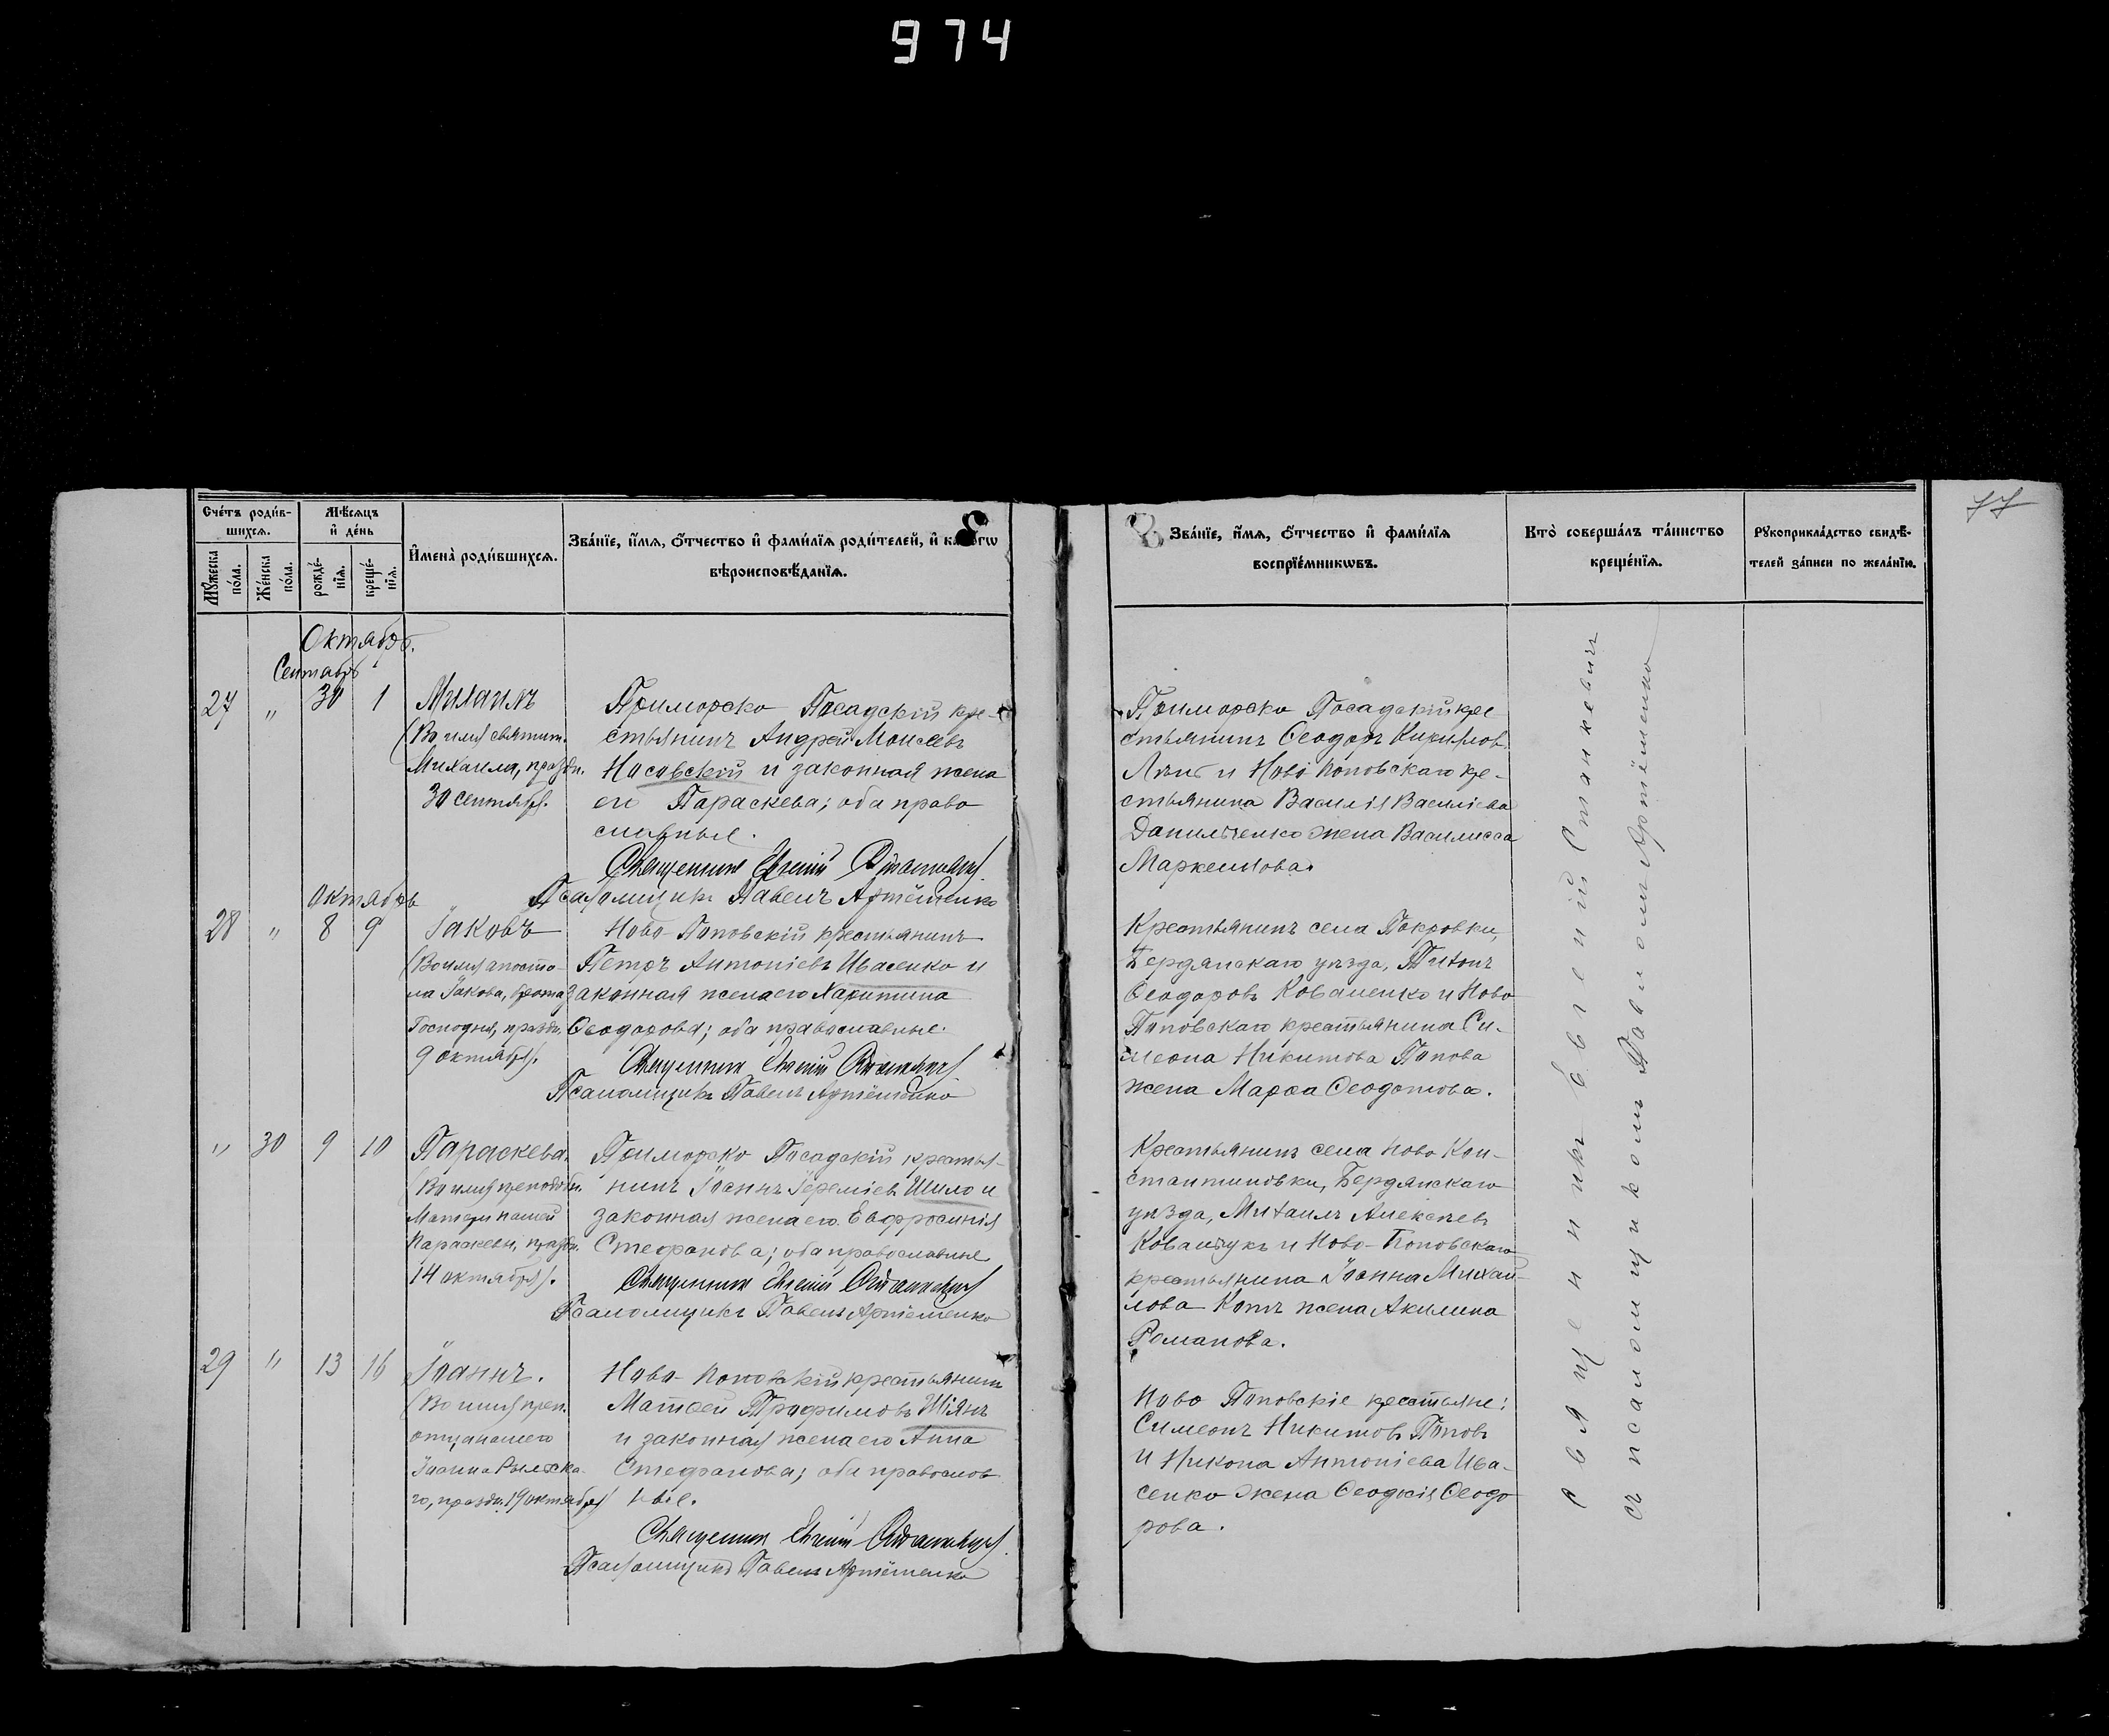 974
17
Счетъ родив-
шихся.
Мѣсяцъ
и день
Мужеска
пола.
Женска
пола.
рожде-
нія.
креще-
нія.
Имена родившихся.
Званіе, имя, отчество и фамилія родителей, и
вѣроисповѣданія.
Званіе, имя, отчество и фамилія
воспріемниковъ.
Кто совершалъ таинство
крещенія.
Рукоприкладство свидѣ-
телей записи по желанію.
Октябрь.
Сентябрь
27 " 30 1
Михаилъ
(Во имя святит.
Михаила, праздн.
30 сентября).
Приморско Посадскій кре-
стьянинъ Андрей Моисеевъ
Носовскій и законная жена
его Параскева; оба право
славные.
Священникъ Евгеній Станкевичъ
Псаломщикъ Павелъ Артёменко
Приморско Посадскій кре
стьянинъ Ѳеодоръ Кирилловъ
и Ново Поповскаго кре-
стьянина Василія Василіева
Данильченко жена Василисса
Маркеллова.
Октябрь
28 " 8 9
Іаковъ
(Во имя апосто-
ла Іакова, брата
Господня, праздн.
9 октября).
Ново-Поповскій крестьянинъ
Петръ Антоніевъ Ивасенко и
законная жена его Харитина
Ѳеодорова; оба православные.
Священникъ Евгеній Станкевичъ
Псаломщикъ Павелъ Артёменко
Крестьянинъ села Покровки,
Бердянскаго уѣзда, Тихонъ
Ѳеодоровъ Коваленко и Ново
Поповскаго крестьянина Си-
меона Никитова Попова
жена Марѳа Ѳеодотова.
" 30 9 10
Параскева.
(Во имя преподобн.
Матери нашей
Параскевы, праздн.
14 октября).
Приморско Посадскій крестья-
нинъ Іоаннъ Іереміевъ Шило и
законная жена его Евфросинія
Стефанова; оба православные
Священникъ Евгеній Станкевичъ
Псаломщикъ Павелъ Артеменко
Крестьянинъ села Ново Кон-
стантиновки, Бердянскаго
уѣзда, Михаилъ Алексѣевъ
Ковальчукъ и Ново-Поповскаго
крестьянина Іоанна Михаи-
лова Котъ жена Акилина
Романова.
29 " 13 16
Іоаннъ.
(Во имя преп.
отца нашего
Іоанна Рыльска-
го, праздн. 19 октября)
Ново-Поповскій крестьянинъ
Матѳей Трофимовъ Шіянъ
и законная жена его Анна
Стефанова; оба православ
ные.
Священникъ Евгеній Станкевичъ
Псаломщикъ Павелъ Артёменко
Ново Поповскіе крестьяне:
Симеонъ Никитовъ Поповъ
и Никона Антоніева Ива-
сенко жена Ѳеодосія Ѳеодо
рова.
Священникъ Евгеній Станкевичъ
съ псаломщикомъ Павломъ Артёменко